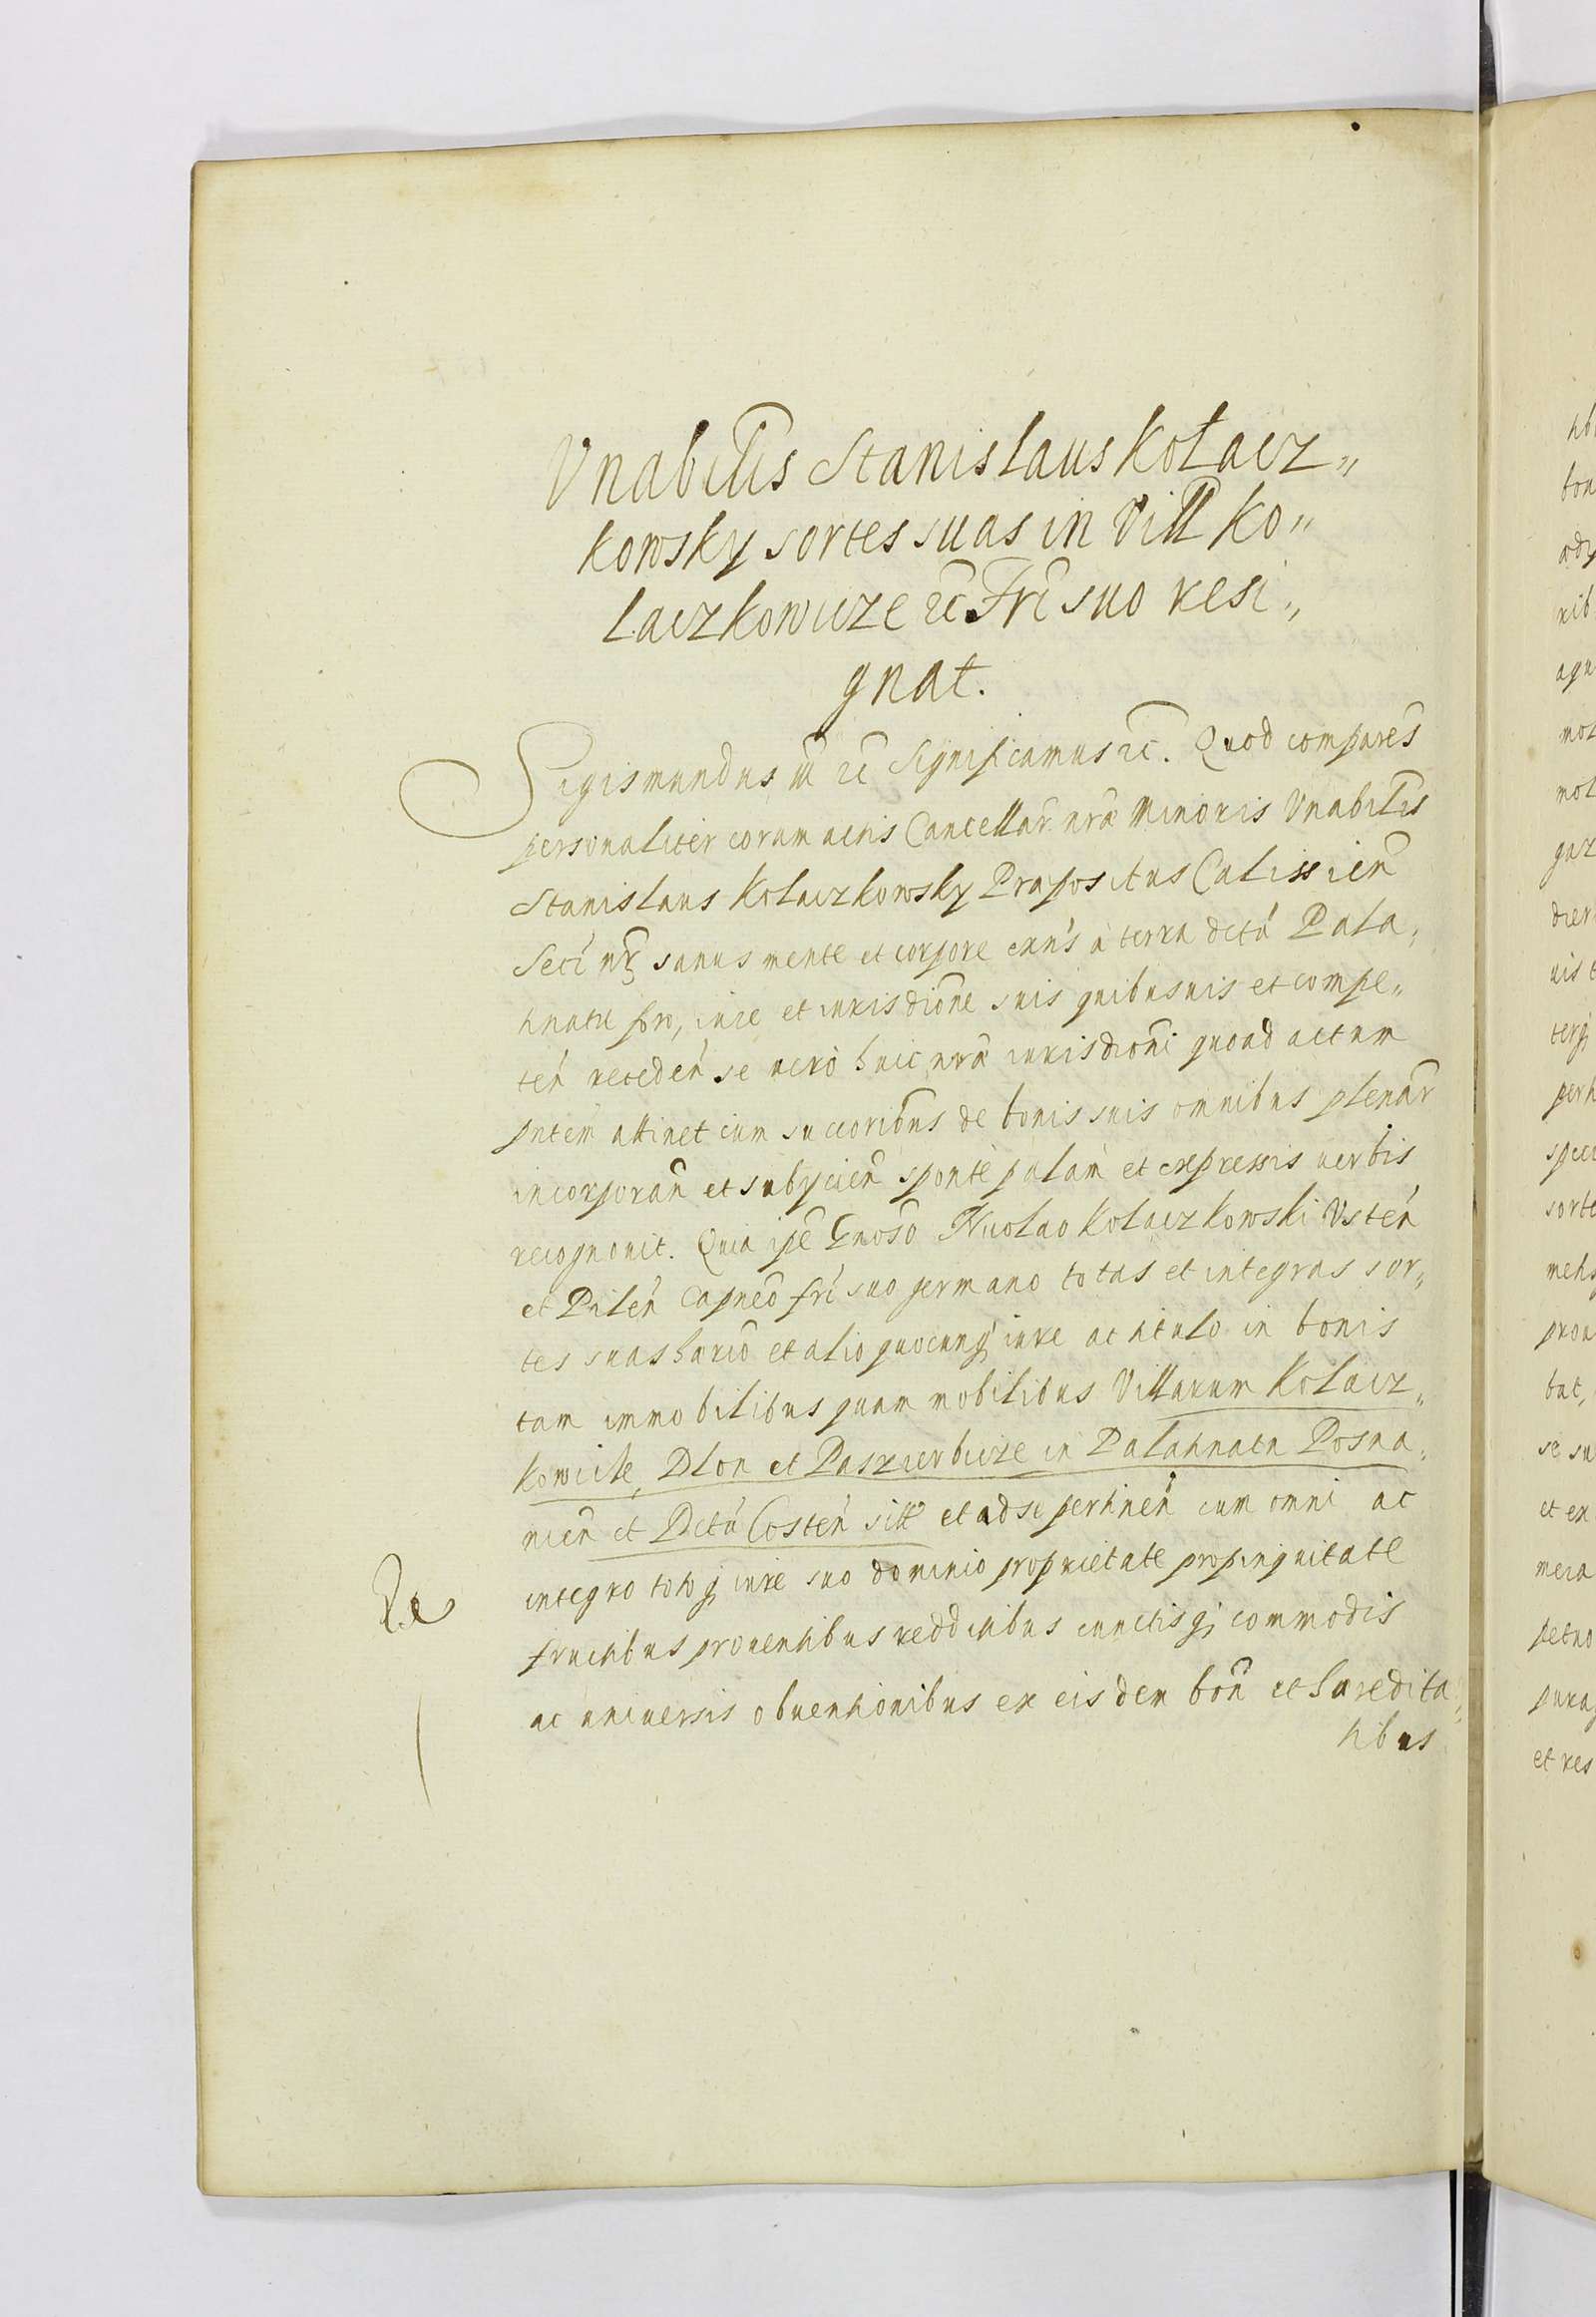 Vnabilis Stanislaus Kołacz„
kowsky sortes suas in Vill Ko„
laczkowicze ꝛc. Frĩ suo resi„
gnat.
Sigismundus III ꝛc Significamus ꝛc. Quod comparẽs
personaliter coram actis Cancellar̃ nrã Minoris Vnabilis
Stanislaus Kolaczkowsky Præpositus Calissien̄
Secr̃ nr̃ sanus mente et corpore exñs à terra dctũ Pala„
tinatu foro, iure et iurisdiõne suis quibusuis et compe„
teñ recedeñ se uerò huic nrã iurisdiõni quoad actum
pntem attinet cum succoribus de bonis suis omnibus plenar̃
incorporañ et subycieñ sponte palam et expressis uerbis
recognouit. Quia ipẽ Gnoso Nicolao Kolaczkowski Vsteñ
et Pileñ Capneo frĩ suo germano totas et integras sor„
tes suas hærio et alio quocunq; iure ac titulo in bonis
tam immobilibus quam mobilibus Villarum Kolacz„
kowicze, Dlon et Paszierbicze in Palatinatu Posna„
nieñ et Dctũ Costeñ sitt et ad se pertineñ cum omni ac
integro totoq; iure suo dominio proprietate propinquitate
fructibus prouentibus redditibus cunctisq; commodis
ac uniuersis obuentionibus ex eisdem boñ et hæredita„
tibus